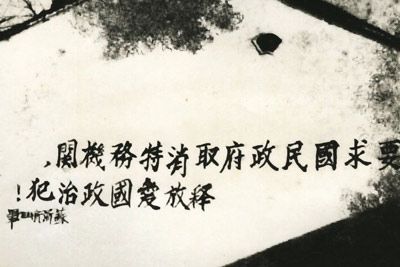 要求國民政府取消特務機関,
释放愛國政治犯!